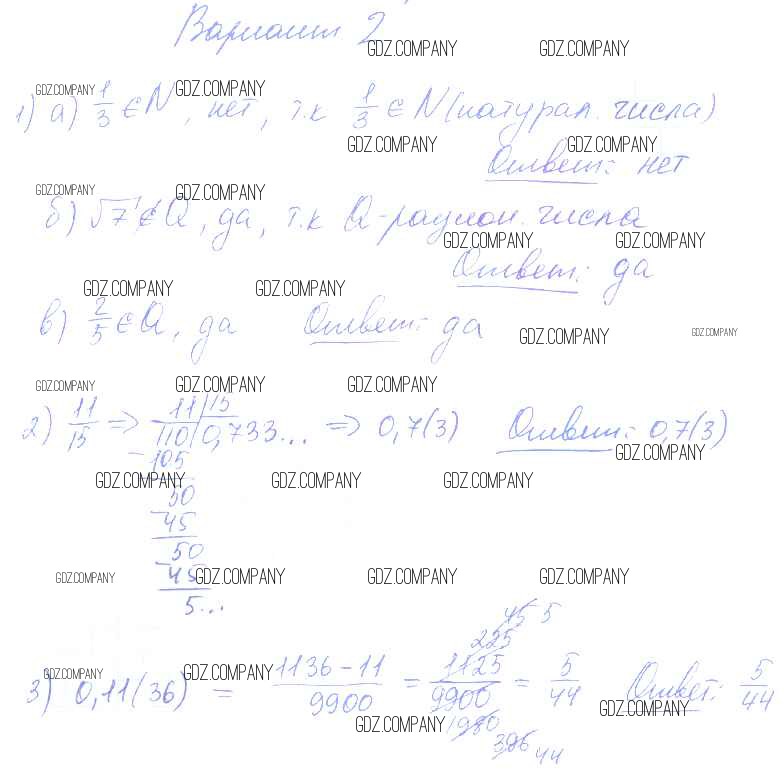 Вариант 2
GDZ.COMPANY GDZ.COMPANY
GDZ.COMPANY GDZ.COMPANY
1) а) 1/3 ∈ N, нет, т.к 1/3 ∈ N (натурал. числа)
GDZ.COMPANY GDZ.COMPANY
Ответ: нет
GDZ.COMPANY GDZ.COMPANY
б) √7 ∉ Q, да, т.к Q - рацион. числа
GDZ.COMPANY GDZ.COMPANY
Ответ: да
GDZ.COMPANY GDZ.COMPANY
в) 2/5 ∈ Q, да Ответ: да
GDZ.COMPANY GDZ.COMPANY
GDZ.COMPANY GDZ.COMPANY GDZ.COMPANY
2) 11/15 => 11 | 15
110 | 0,733... => 0,7(3) Ответ: 0,7(3)
GDZ.COMPANY
- 105
GDZ.COMPANY GDZ.COMPANY GDZ.COMPANY
50
- 45
50
- 45
GDZ.COMPANY GDZ.COMPANY GDZ.COMPANY GDZ.COMPANY
5...
45 5
225
GDZ.COMPANY GDZ.COMPANY
3) 0,11(36) = 1136 - 11/9900 = 1125/9900 = 5/44 Ответ: 5/44
GDZ.COMPANY
GDZ.COMPANY 1980
396 44